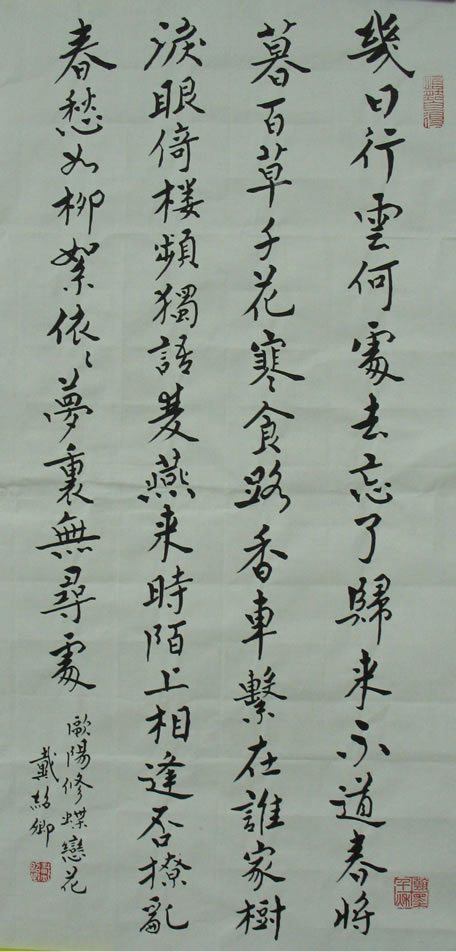 幾日行雲何處去忘了歸来不道春將
暮百草千花寒食路香車繫在誰家樹
淚眼倚楼頻獨語雙燕来時陌上相逢否撩亂
春愁如柳絮依〻夢裏無尋處
歐陽修蝶戀花
戴卿